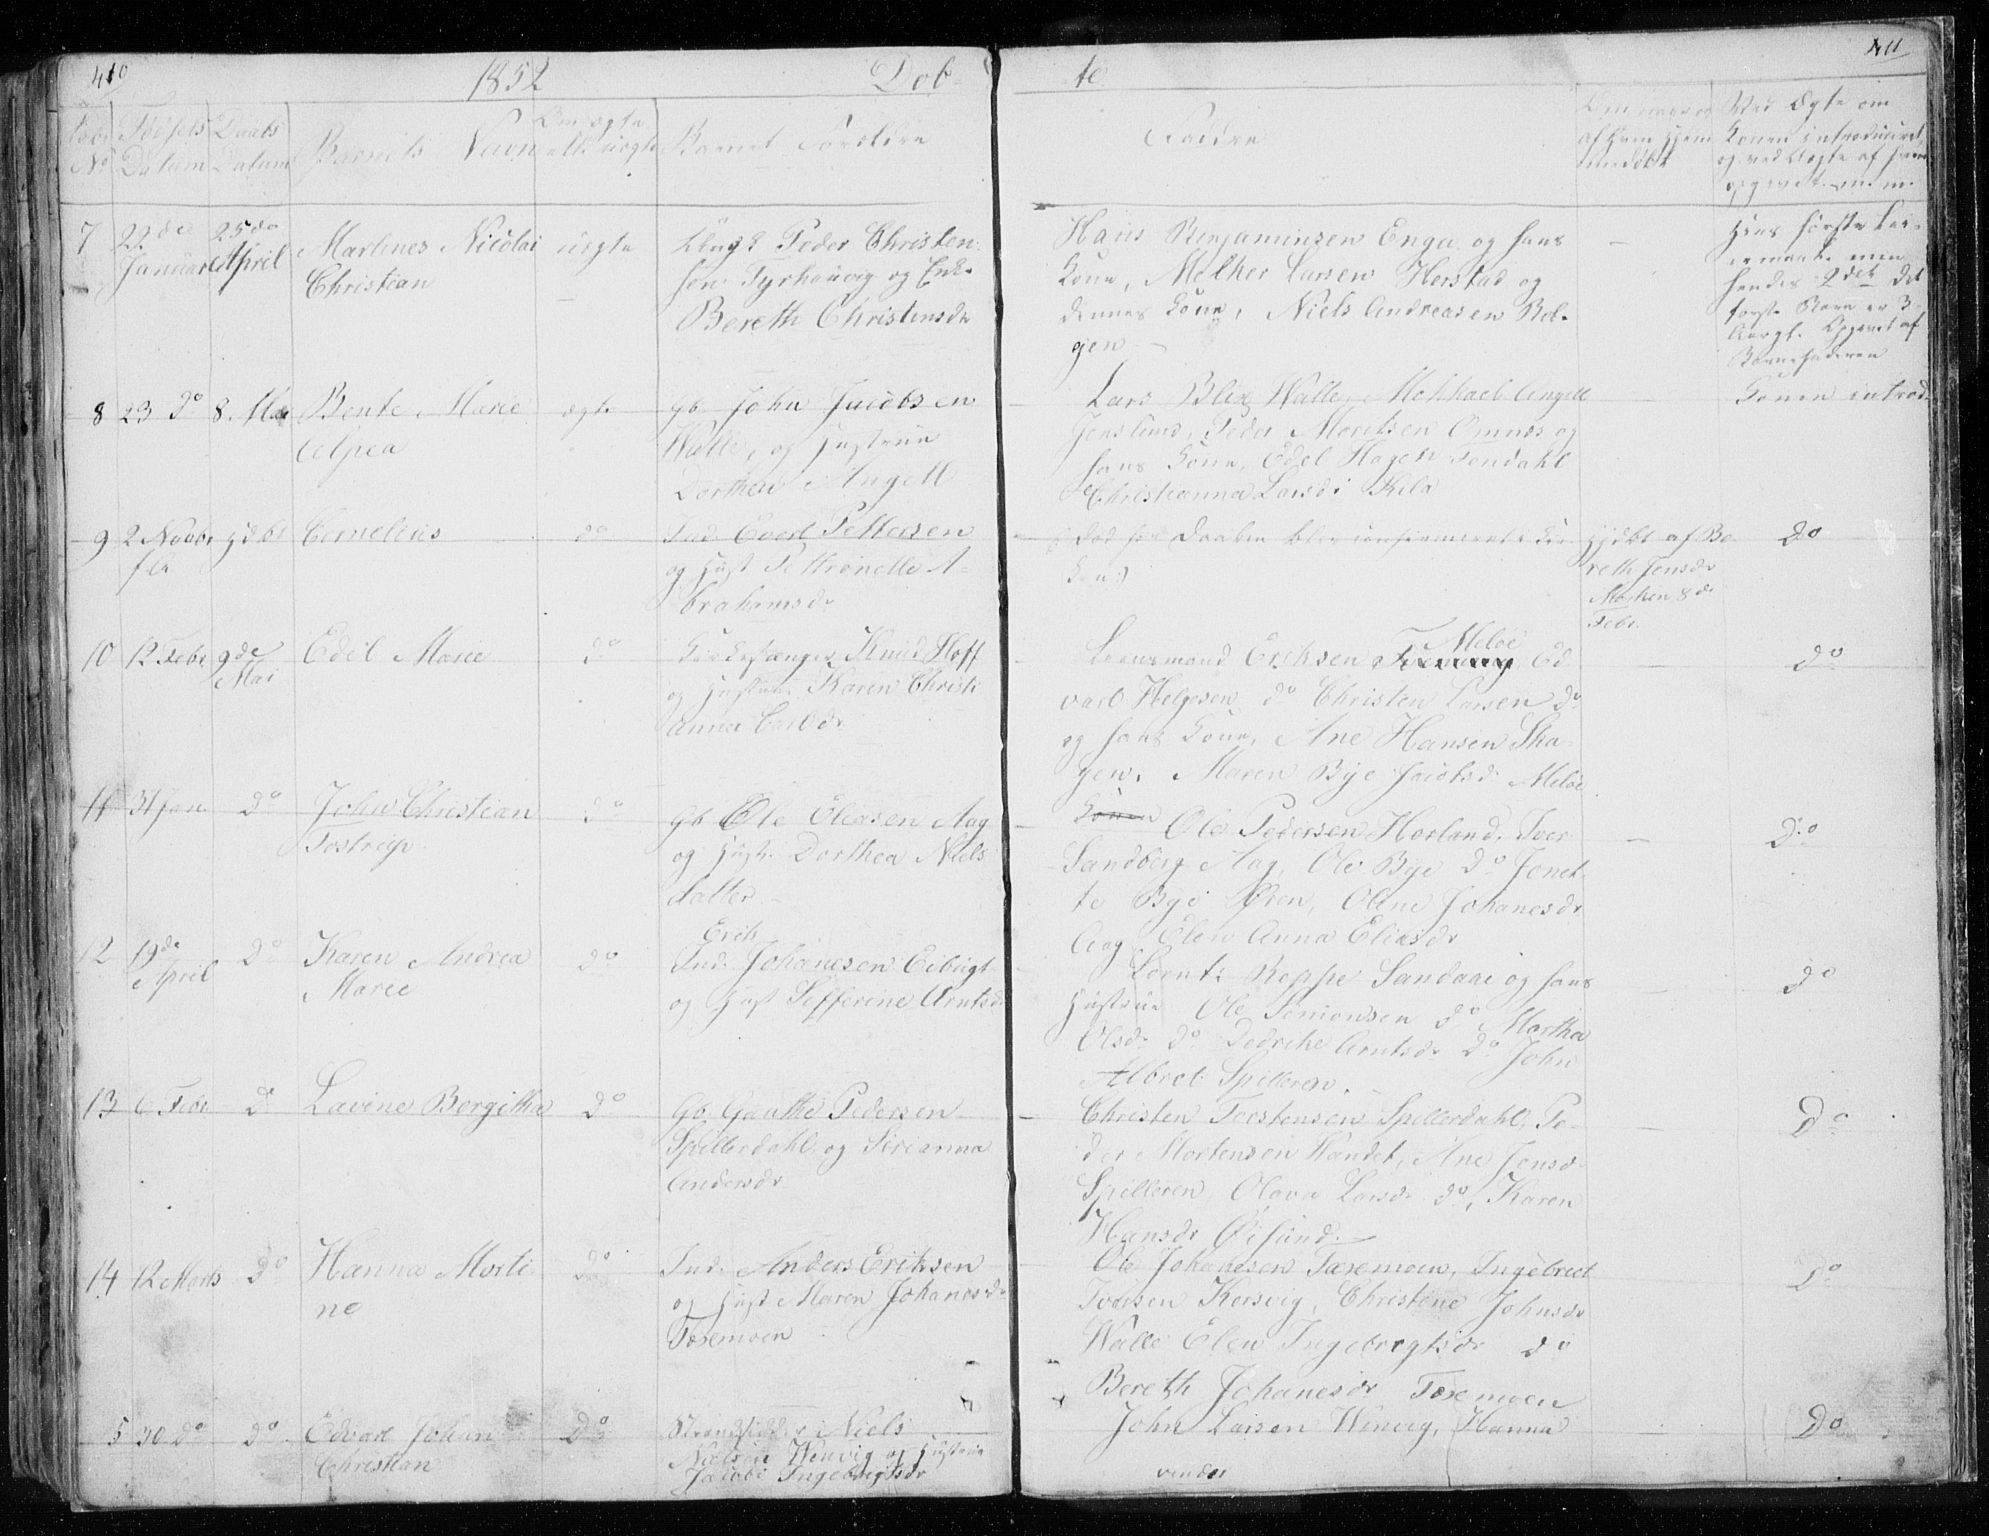 410
1852
Døb
te
411
Fødsels Daabs
Datum Datum
Barnets Navn
Barnets Forældre
Faddre
Om ægte
No
7 22de 25de
Januar April
Martines Nicolai
Christian
uægte
Peder Christen
sen og Enke
Bereth Christensdr
Hans Benjaminsen Enga og hans
Kone, Melker Larsen Herstad og
dennes Kone, Niels Andreasen Bol
gen
Hans første Lei
ermaal men
hendes 2det det
første Barn er 3
Aar gl. Opgivet af
Barnefaderen
8 23 do 8 Mai
Bente Marie
Alpea
ægte
Gb. John Jacobsen
Walle, og Hustrue
Dorthea Angell
Lars Blix Walle, Mekkael Angell
Jenslund, Peder Moritsen Omnæs og
hans Kone, Edel Hagen Fondahl
Christianna Larsd. Kila
Konen introd
9 2 Novbr hjdbt
Cornelius
do
Ind. Evert Pettersen
og Hust Petronelle A
brahamsdr
død før Daaben blev confirmeret i Kir
ken)
hjdbt af Be
reth Jensdr
8de
Febr.
Do
10 12 Febr. 9de
Mai
Edel Marie
do
Kirkesanger Knud Hoff
og Hustrue Karen Christi
anna Carlsdr
Meløe
Lensmand Eriksen Ed
vard Helgesen do Christen Larsen do
og hans Kone, Ane Hansen Ska
gen, Maren Bye Jacobsd. Meløe
do
11 31 Jan. do
John Christian
Tostrup
do
Gb. Ole Eliasen Aag
og Hustr. Dorthea Niels
datter
Konen
Ole Pedersen Horland, Iver
Sandberg Aag, Ole Bye do Jonet
te Bye Øren, Oline Johanesdr
Aag Elen Anna Eliasdr
Do
12 19de do
April
Karen Andrea
Marie
do
Erik
Ind. Johanesen Eebugt
og Hust Sefferine Arntsdr
Lornts Reppe Sandaae og hans
Hustrue Ole Simonsen do Martha
Olsdr do Dedrike Arntsdr do John
Albret Spilleren.
do
13 6 Febr do
Lavine Bergitha
do
Gb. Gaathe Pedersen
Spillerdahl og Serianna
Andersdr
Christen Torstensen Spillerdahl, Pe
der Mortensen Vandet, Ane Jensdr
Spilleren, Olava Larsdr do, Karen
Hansdr Øisund.
Do
14 12 Marts do
Hanna Marti
ne
do
Ind. Anders Eriksen
og Hust Maren Johanesdr
Toremoen
Ole Johanesen Toremoen, Ingebrect
Iversen Korsvig, Christine Johnsdr
Walle Elen Ingebregtsdr do
Bereth Johanesdr Toremoen
Do
5 30 do do
Edvart Johan
Christian
Do
Strandsidder Niels
Nielsen Wenvig og Hustrue
Jacobe Ingebrigtsdr
John Larsen Wenvig, Hanna
vender
Do